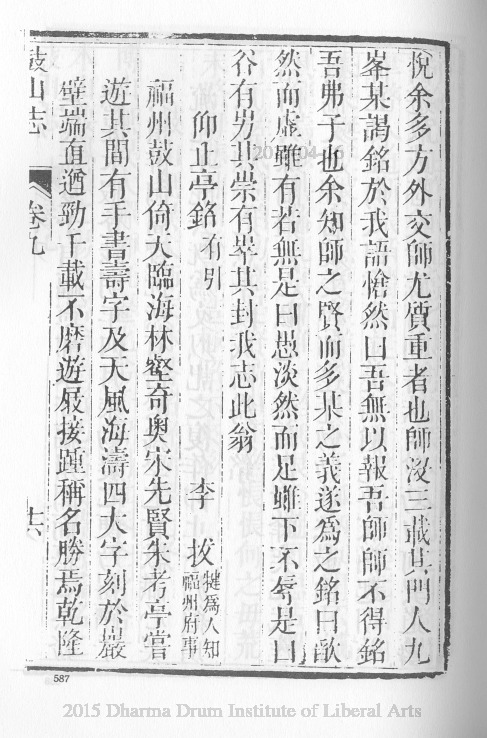 悅余多方外交師尤質重者也師沒三載其門人九
峯某謁銘於我語愴然曰吾無以報吾師師不得銘
吾弗子也余知師之賢而多某之義遂為之銘曰歉
然而虛雖有若無是曰愚淡然而足雖下不辱是曰
谷有男其崇有崒其封我志此翁
仰止亭銘 有引 李拔 犍為人知福州府事
福州鼓山倚大臨海林壑奇奧宋先賢朱考亭嘗
遊其間有手書壽字及天風海濤四大字刻於巖
壁端直遒勁千載不磨遊屐接踵稱名勝焉乾隆
鼓山志 卷九 十六
587
2015 Dharma Drum Institute of Liberal Arts